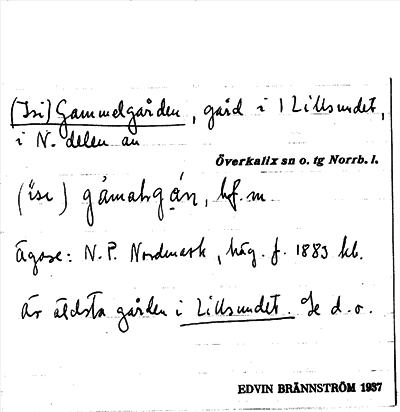 (Isi) Gammelgården, gård i 1 Lillsundet,
i N. delen av
Överkalix sn o. tg Norrb. l.
(ı̊sı) gåmalıgạ̊n, bf. m
Ägare: N. P. Nordmark, häg. f. 1883 hb.
Är äldsta gården i Lillsundet. Se d. o.
EDVIN BRÄNNSTRÖM 1937